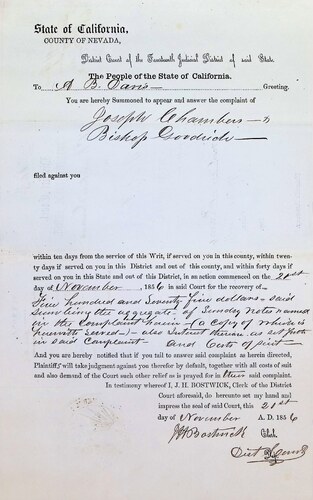 State of California,
COUNTY OF NEVADA,
District Court of the Fourteenth Judicial District of said State.
The People of the State of California.
To A B. Davis— Greeting.
You are hereby Summoned to appear and answer the complaint of
Joseph Chambers—&
Bishop Goodrich—
filed against you
within ten days from the service of this Writ, if served on you in this county, within twen-
ty days if served on you in this District and out of this county, and within forty days if
served on you in this State and out of this District, in an action commenced on the 21st
day of November, 1856 in said Court for the recovery of
Five hundred and Seventy five dollars—said
sum being the aggregate of Sunday Notes named
in the Complaint herein—(a copy of which is
herewith served)—also interest thereon as set forth
in said Complaint— and Costs of suit—
And you are hereby notified that if you fail to answer said complaint as herein directed,
Plaintiffs will take judgment against you therefor by default, together with all costs of suit
and also demand of the Court such other relief as is prayed for in their said complaint.
In testimony whereof I, J. H. BOSTWICK, Clerk of the District
Court aforesaid, do hereunto set my hand and
impress the seal of said Court, this 21st
day of November A. D. 1856
J H Bostwick Clerk.
Dist Court